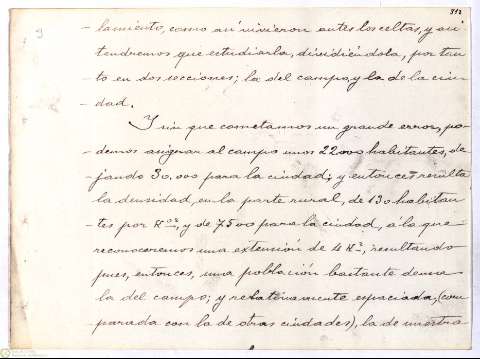 312
lamiento, como así vivieron antes los celtas, y así
tendremos que estudiarla, dividiéndola, por tan
to en dos secciones; la del campo, y la de la ciu
dad.
Y sin que cometamos un grande error, po-
demos asignar al campo unos 22000 habitantes, de
jando 30,000 para la ciudad; y entonces resulta
la densidad, en la parte rural, de 130 habitan
tes por K.os, y de 7500 para la ciudad, á la que
reconoceremos una extensión de 4 K.2, resultando
pues, entonces, una población bastante densa
la del campo; y relativamente espaciada, (com
parada con la de otras ciudades), la de nuestra